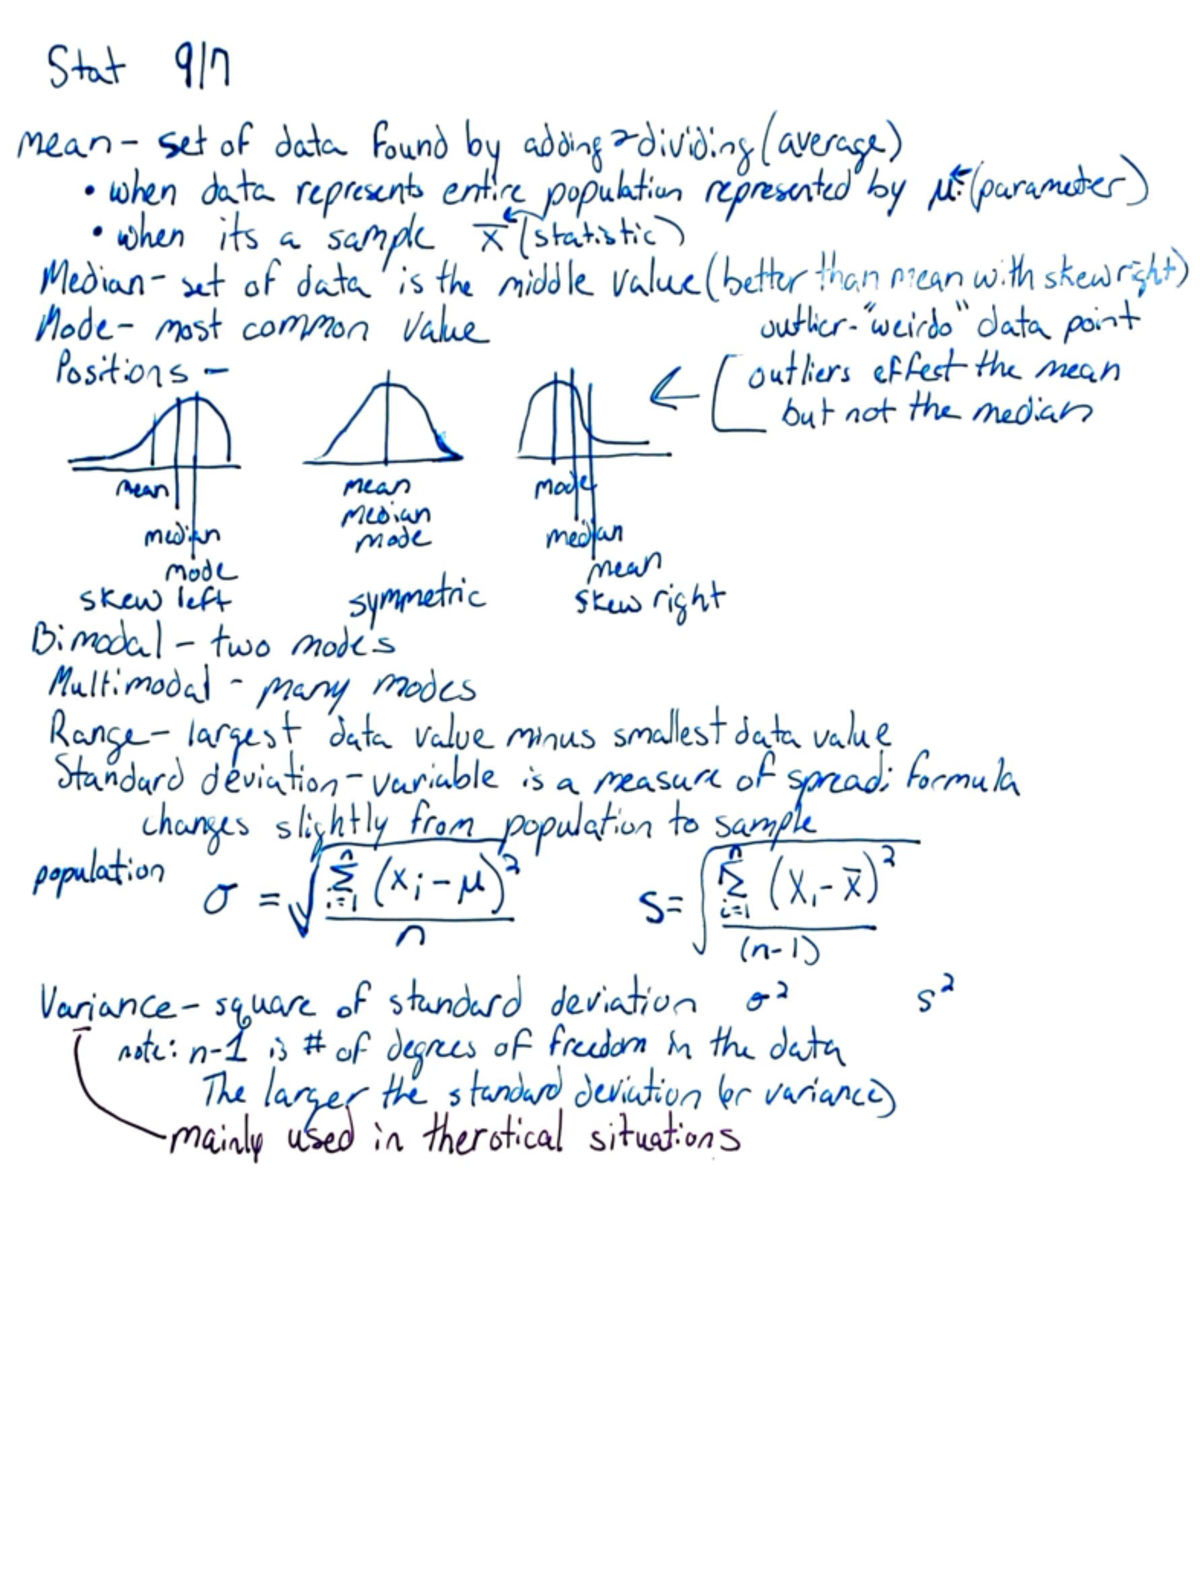 Stat 9/7
mean - set of data found by adding & dividing (average)
• when data represents entire population represented by μ ← (parameter)
• when its a sample x̄ ← (statistic)
Median - set of data is the middle value (better than mean with skew right)
Mode - most common value
outlier - "weirdo" data point
Positions -
outliers effest the mean
but not the median
mean
median
mode
skew left
mean
median
mode
symmetric
mode
median
mean
skew right
Bimodal - two modes
Multimodal - many modes
Range - largest data value minus smallest data value
Standard deviation - variable is a measure of spread; formula
changes slightly from population to sample
population σ = √(Σ_{i=1}^{n} (x_i - μ)² / n) s = √(Σ_{i=1}^{n} (x_i - x̄)² / (n-1))
Variance - square of standard deviation σ² s²
note: n-1 is # of degrees of freedom in the data
The larger the standard deviation (or variance)
mainly used in therotical situations